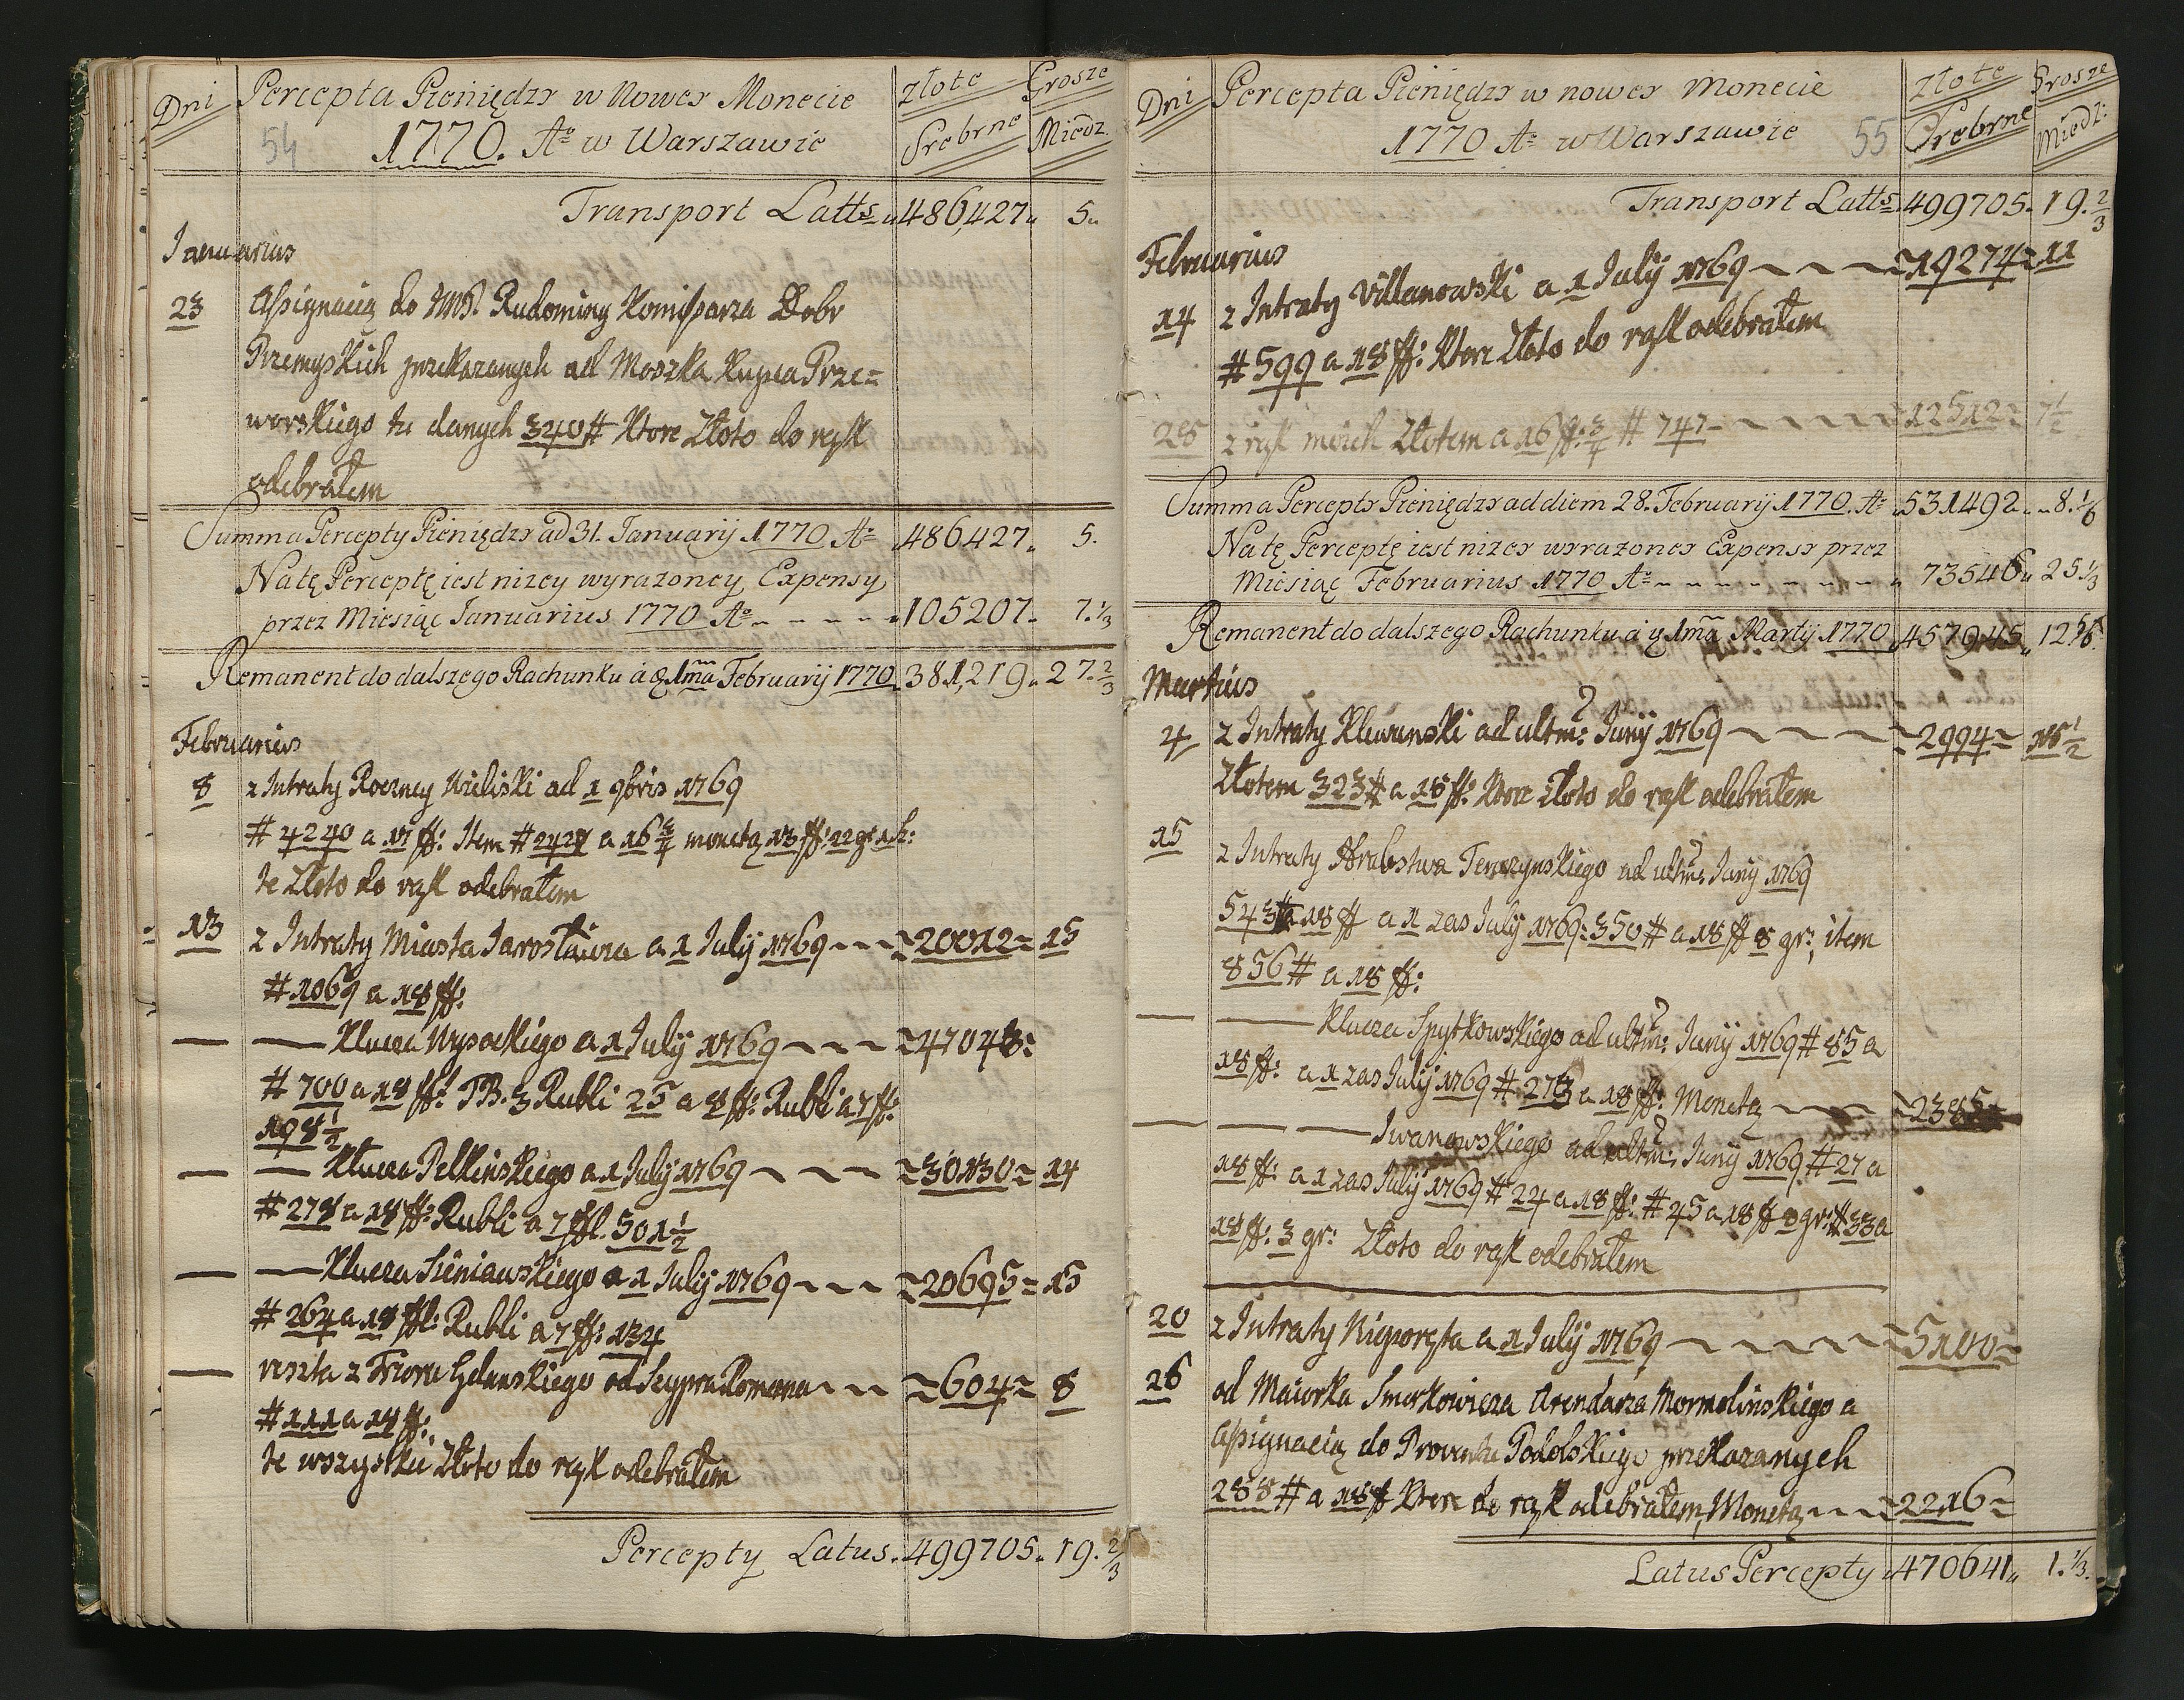 Dni Percepta Pieniędzy w Nowey Monecie Złote Grosze
54 1770. Aº w Warszawie Srebrne Miedz.
Transport Latts 486,427 5.
Januarius
23 Assignacią do JMS. Rudominy Komissarza Dobr
Przemyskich przekazanych od Moszka Kupca Prze=
worskiego tu danych 340 # Ktore Złoto do rąk
odebrałem
Summa Percepty Pieniędzy ad 31. Januarij 1770 Aº 486427. 5.
Na tę Perceptę iest nizey wyrazoney Expensy
przez Miesiąc Januarius 1770 Aº 105207. 7. 1/3
Remanent do dalszego Rachunku á 1ma Februarij 1770 381,219. 27. 2/3
Februarius
8 z Intraty Roczney ad 1 9bris 1769
# 4240 a 17 ff: Item # a 16 3/4 monetą 13 ff: 22 gr
te Złoto do rąk odebrałem
13 z Intraty Miasta Jarosławia a 1 July 1769 20012 15
# 1069 a 18 ff:
— Klucza Wysockiego a 1 July 1769
# 700 a 18 ff: TB. 3 Rubli 25 a 8 ff: Rubli a 7 ff:
198 1/2
— Klucza Pełkińskiego a 1 July 1769 30130 14
# 278 a 18 ff: Rubli a 7 ffl. 501 1/2
— Klucza Sieniawskiego a 1 July 1769 20695 15
# 264 a 18 ffl: Rubli a 7 ff: 134
reszta z Gdanskiego od Szypra Romana 604 8
# 111 a 18 ff:
te wszystkie Złoto do rąk odebrałem
Percepty Latus. 499705. 19. 2/3
Dni Percepta Pieniędzy w nowey Monecie Złote Grosze
1770 Aº w Warszawie 55 Srebrne Miedz:
Transport Latts 499705. 19. 2/3
Februarius
14 z Intraty Villanowski a 1 July 1769 19274 11
# 599 a 18 ff: Ktore Złoto do rąk odebrałem
28 z rąk moich Złotem a 16 ff: 3/4 # 747 12512 7 1/2
Summa Percepty Pieniędzy ad diem 28. Februarij 1770. Aº 531492 8. 1/6
Na tę Perceptę iest nizey wyrazoney Expensy przez
Miesiąc Februarius 1770 Aº 73546 25 1/3
Remanent do dalszego Rachunku á 1ma Martij 1770 457945 12 5/6
Martius
4 z Intraty Klewanski ad ultm: Junij 1769 2994 15 1/2
Złotem 323 # a 18 ff: Ktore Złoto do rąk odebrałem
15 z Intraty Hrabstwa Tenczynskiego ad ultm: Junij 1769
543 # a 18 ff a 1 zas July 1769: 350 # a 18 ff 8 gr: item
856 # a 18 ff:
— Klucza Spytkowskiego ad ultm: Junij 1769 # 85 a
18 ff: a 1 zas July 1769 # 273 a 18 ff: Monetą 2385
— Iwanowskiego ad ultm: Junij 1769 # 27 a
18 ff: a 1 zas July 1769 # 24 a 18 ff: # 45 a 18 ff 8 gr: # 33 a
18 ff: 3 gr: Złoto do rąk odebrałem
20 z Intraty Nieporęta a 1 July 1769 5100
26 od Maiorka Smerkowicza Arendarza Mormolinskiego a
Assignacią do Prowentu Podolskiego przekazanych
288 # a 18 ff Ktore do rąk odebrałem, Monetą 2216
Latus Percepty 470641 1. 1/3.